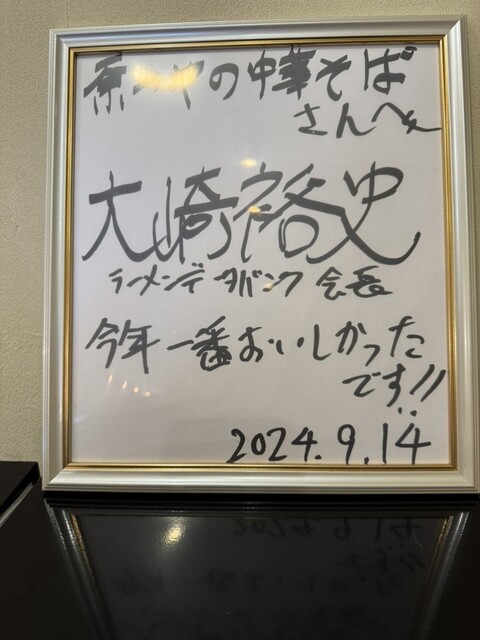 原一やの中華そば
さんへ
大崎裕史
ラーメンデータバンク 会長
今年一番おいしかった
です!!
2024.9.14